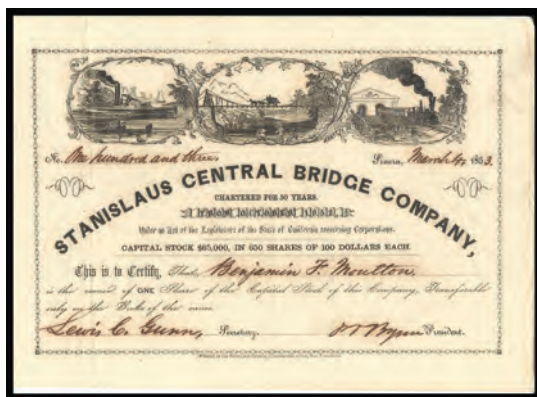 No. One hundred and three. Sonora, March 4, 1853.
STANISLAUS CENTRAL BRIDGE COMPANY,
CHARTERED FOR 50 YEARS.
Under an Act of the Legislature of the State of California concerning Corporations.
CAPITAL STOCK $65,000, IN 650 SHARES OF 100 DOLLARS EACH.
This is to Certify, That, Benjamin F. Moulton,
is the owner of ONE Share of the Capital Stock of this Company, Transferable
only on the Books of the same.
Lewis C. Gunn, Secretary. Byrne President.